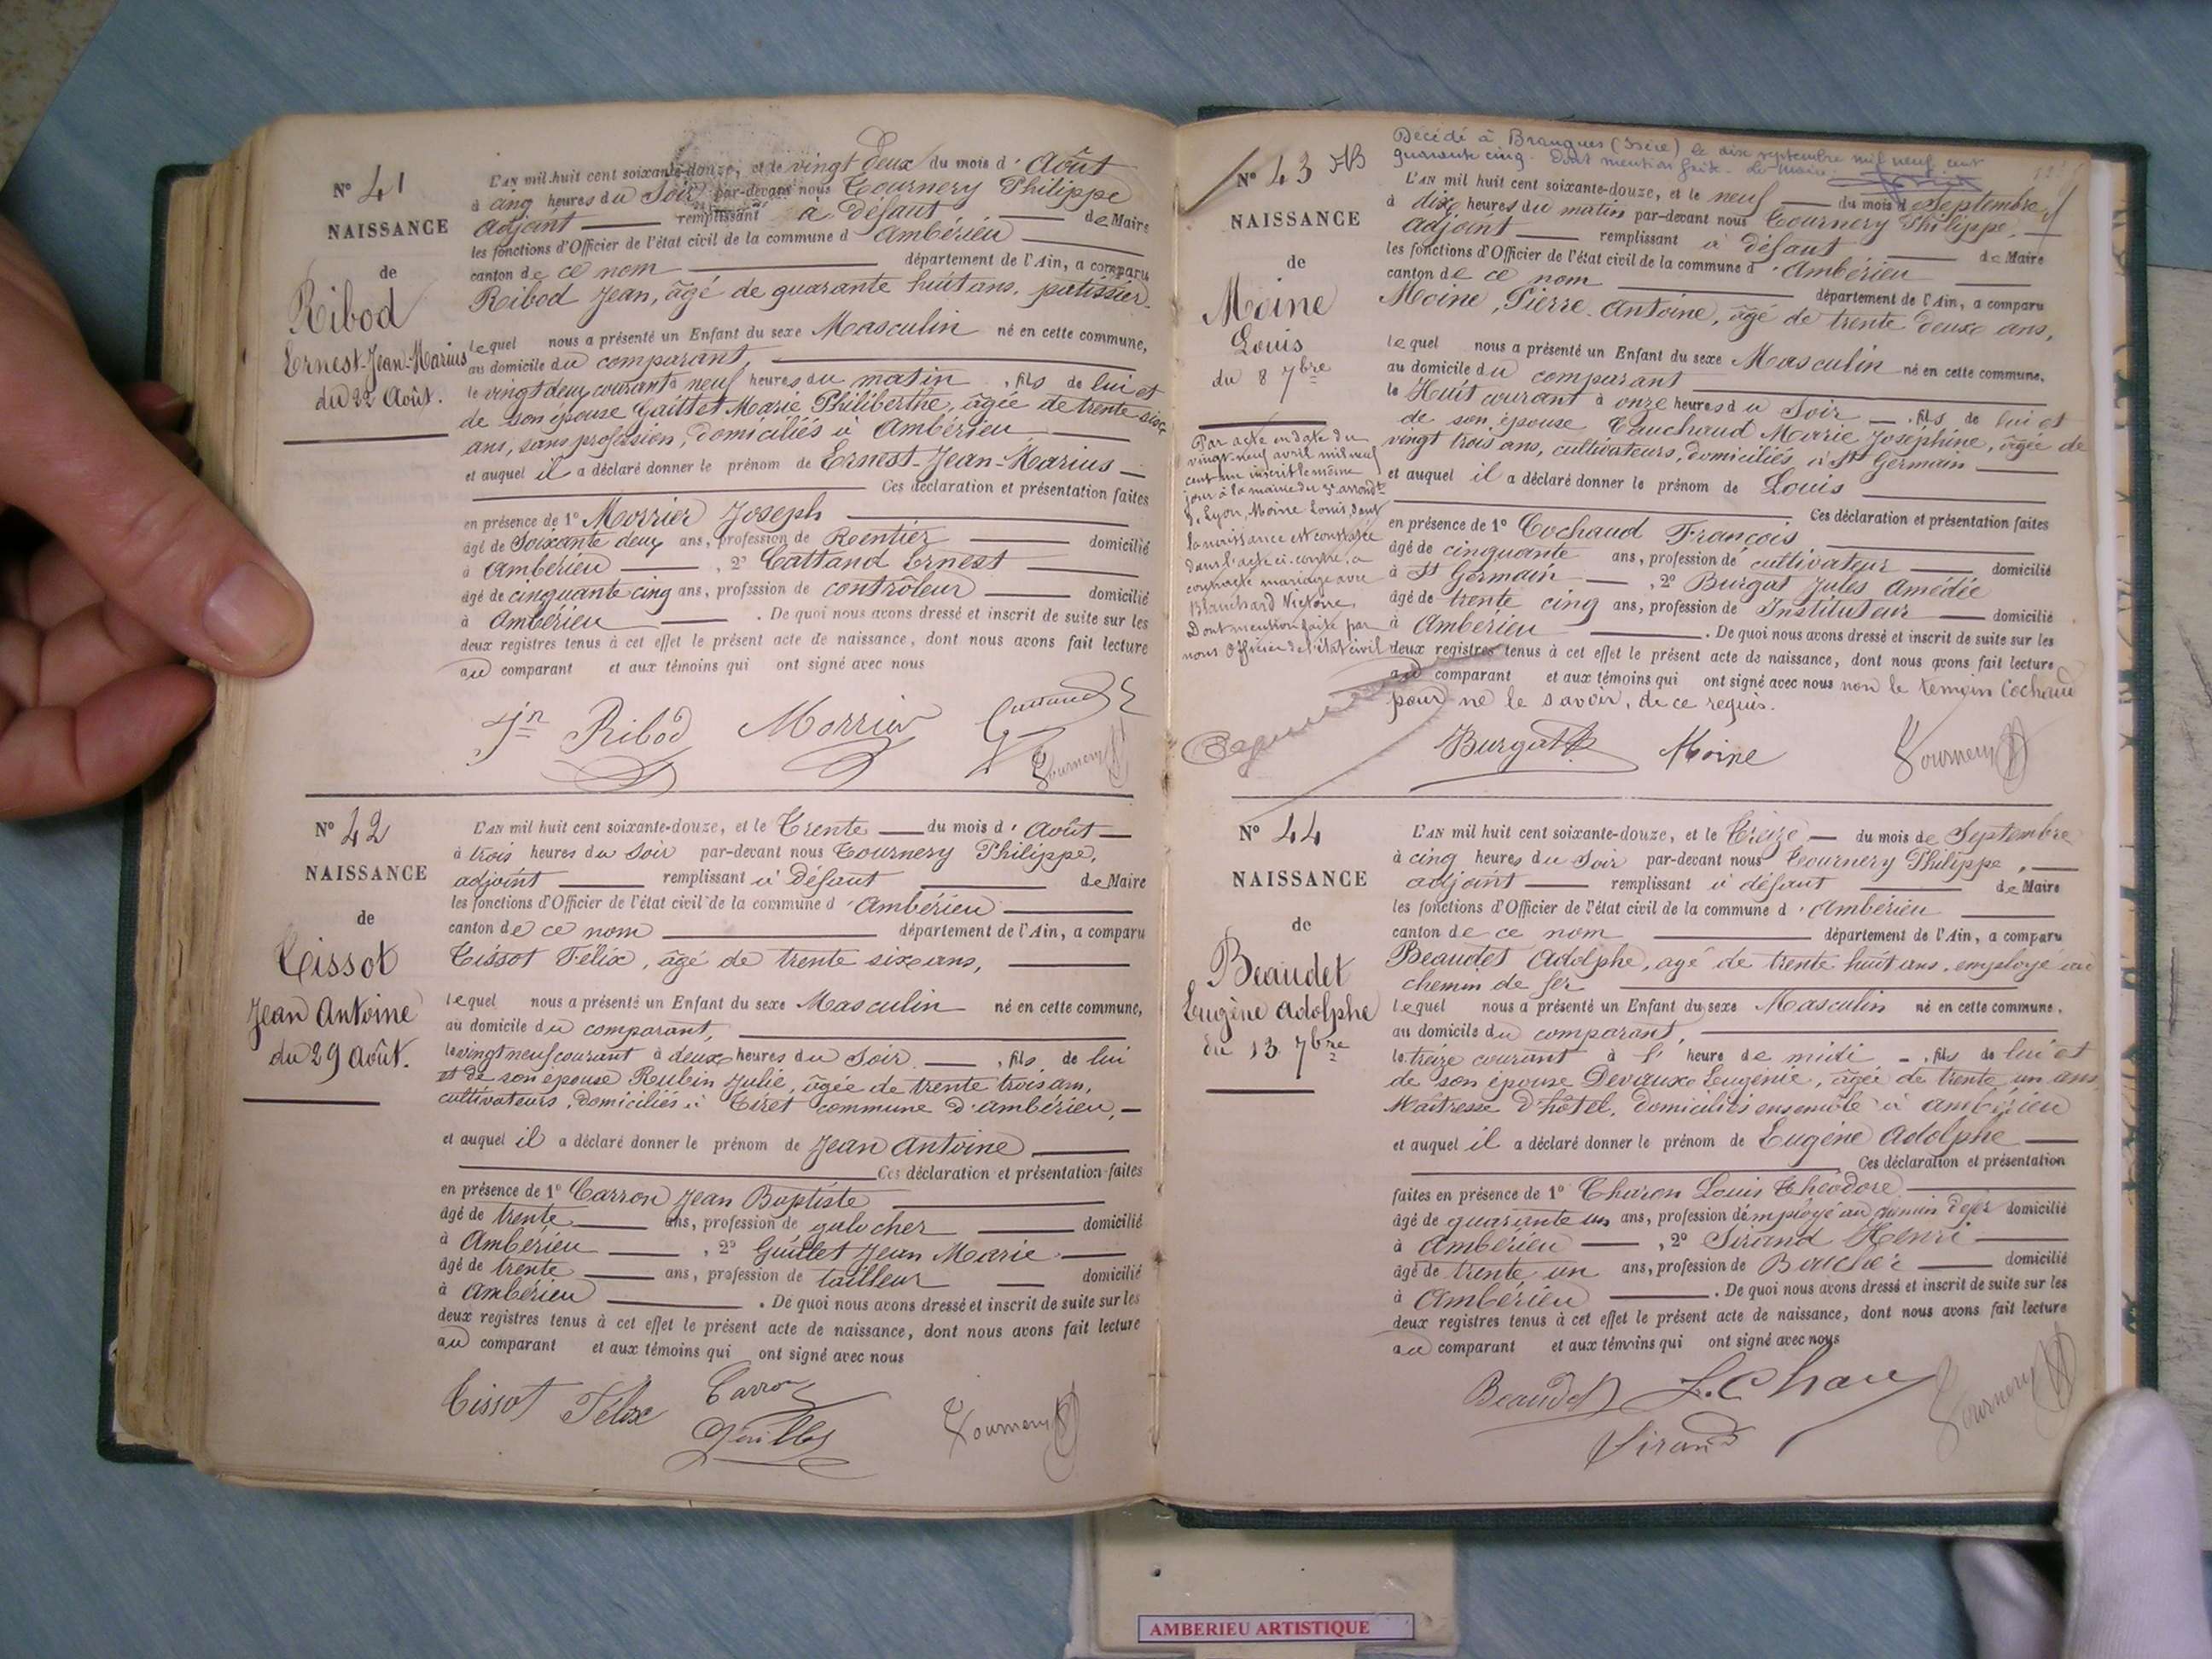 N° 41
NAISSANCE
de
Ribod
Ernest-Jean-Marius
du 22 Août.
L'AN mil huit cent soixante-douze, et le vingt deux du mois d'Août
à cinq heures du Soir par-devant nous Tournery Philippe
adjoint remplissant à défaut de Maire
les fonctions d'Officier de l'état civil de la commune d'Ambérieu
canton de ce nom département de l'Ain, a comparu
Ribod Jean, âgé de quarante huit ans, patissier.
lequel nous a présenté un Enfant du sexe Masculin né en cette commune,
au domicile du comparant,
le vingt deux courant à neuf heures du matin, fils de lui et
de son épouse Gaillet Marie Philiberthe, âgée de trente six
ans, sans profession, domiciliés à Ambérieu
et auquel il a déclaré donner le prénom de Ernest-Jean-Marius
Ces déclaration et présentation faites
en présence de 1° Morrier Joseph
âgé de Soixante deux ans, profession de Rentier domicilié
à Ambérieu, 2° Cattand Ernest
âgé de cinquante cinq ans, profession de contrôleur domicilié
à Ambérieu. De quoi nous avons dressé et inscrit de suite sur les
deux registres tenus à cet effet le présent acte de naissance, dont nous avons fait lecture
au comparant et aux témoins qui ont signé avec nous
Jn Ribod Morrier
Tournery
N° 42
NAISSANCE
de
Tissot
Jean Antoine
du 29 Août.
L'AN mil huit cent soixante-douze, et le Trente du mois d'Août
à trois heures du Soir par-devant nous Tournery Philippe,
adjoint remplissant à défaut de Maire
les fonctions d'Officier de l'état civil de la commune d'Ambérieu
canton de ce nom département de l'Ain, a comparu
Tissot Félix, âgé de trente six ans,
lequel nous a présenté un Enfant du sexe Masculin né en cette commune,
au domicile du comparant,
le vingt neuf courant à deux heures du Soir, fils de lui
et de son épouse Rubin Julie, âgée de trente trois ans,
cultivateurs, domiciliés à Tiret commune d'Ambérieu,
et auquel il a déclaré donner le prénom de Jean Antoine
Ces déclaration et présentation faites
en présence de 1° Carron Jean Baptiste
âgé de trente ans, profession de galocher domicilié
à Ambérieu, 2° Guillet Jean Marie
âgé de trente ans, profession de tailleur domicilié
à Ambérieu. De quoi nous avons dressé et inscrit de suite sur les
deux registres tenus à cet effet le présent acte de naissance, dont nous avons fait lecture
au comparant et aux témoins qui ont signé avec nous
Tissot Félix Carron
Guillet Tournery
Décédé à Brangues (Isère) le dix septembre mil neuf cent
quarante cinq. Dont mention faite. Le Maire.
N° 43
NAISSANCE
de
Moine
Louis
du 8 7bre
Par acte en date du
vingt-neuf avril mil neuf
cent un inscrit le même
jour à la mairie du 3e arrondt
de Lyon, Moine Louis, dont
la naissance est constatée
dans l'acte ci-contre, a
contracté mariage avec
Blanchard Victoire,
Dont mention faite par
nous Officier de l'état civil
L'AN mil huit cent soixante-douze, et le neuf du mois de Septembre
à dix heures du matin par-devant nous Tournery Philippe,
adjoint remplissant à défaut de Maire
les fonctions d'Officier de l'état civil de la commune d'Ambérieu
canton de ce nom département de l'Ain, a comparu
Moine, Pierre Antoine, âgé de trente deux ans,
lequel nous a présenté un Enfant du sexe Masculin né en cette commune,
au domicile du comparant
le Huit courant à onze heures du Soir, fils de lui et
de son épouse Cauchaud Marie Joséphine, âgée de
vingt trois ans, cultivateurs, domiciliés à St Germain
et auquel il a déclaré donner le prénom de Louis
Ces déclaration et présentation faites
en présence de 1° Cochaud François
âgé de cinquante ans, profession de cultivateur domicilié
à St Germain, 2° Burgat Jules Amédée
âgé de trente cinq ans, profession de Instituteur domicilié
à Ambérieu. De quoi nous avons dressé et inscrit de suite sur les
deux registres tenus à cet effet le présent acte de naissance, dont nous avons fait lecture
au comparant et aux témoins qui ont signé avec nous non le témoin Cochaud
pour ne le savoir, de ce requis.
Burgat Moine Tournery
N° 44
NAISSANCE
de
Beaudet
Eugène Adolphe
du 13 7bre
L'AN mil huit cent soixante-douze, et le Treize du mois de Septembre
à cinq heures du Soir par-devant nous Tournery Philippe,
adjoint remplissant à défaut de Maire
les fonctions d'Officier de l'état civil de la commune d'Ambérieu
canton de ce nom département de l'Ain, a comparu
Beaudet Adolphe, agé de trente huit ans, employé au
chemin de fer
lequel nous a présenté un Enfant du sexe Masculin né en cette commune,
au domicile du comparant,
le treize courant à l'heure de midi, fils de lui et
de son épouse Devaux Eugénie, âgée de trente un ans
Maîtresse d'hôtel, domiciliés ensemble à ambérieu
et auquel il a déclaré donner le prénom de Eugène Adolphe
Ces déclaration et présentation
faites en présence de 1° Charon Louis Théodore
âgé de quarante un ans, profession d'employé au chemin de fer domicilié
à Ambérieu, 2° Sirand Henri
âgé de trente un ans, profession de Boucher domicilié
à Ambérieu. De quoi nous avons dressé et inscrit de suite sur les
deux registres tenus à cet effet le présent acte de naissance, dont nous avons fait lecture
au comparant et aux témoins qui ont signé avec nous
Beaudet L. Charon
Sirand Tournery
AMBERIEU ARTISTIQUE